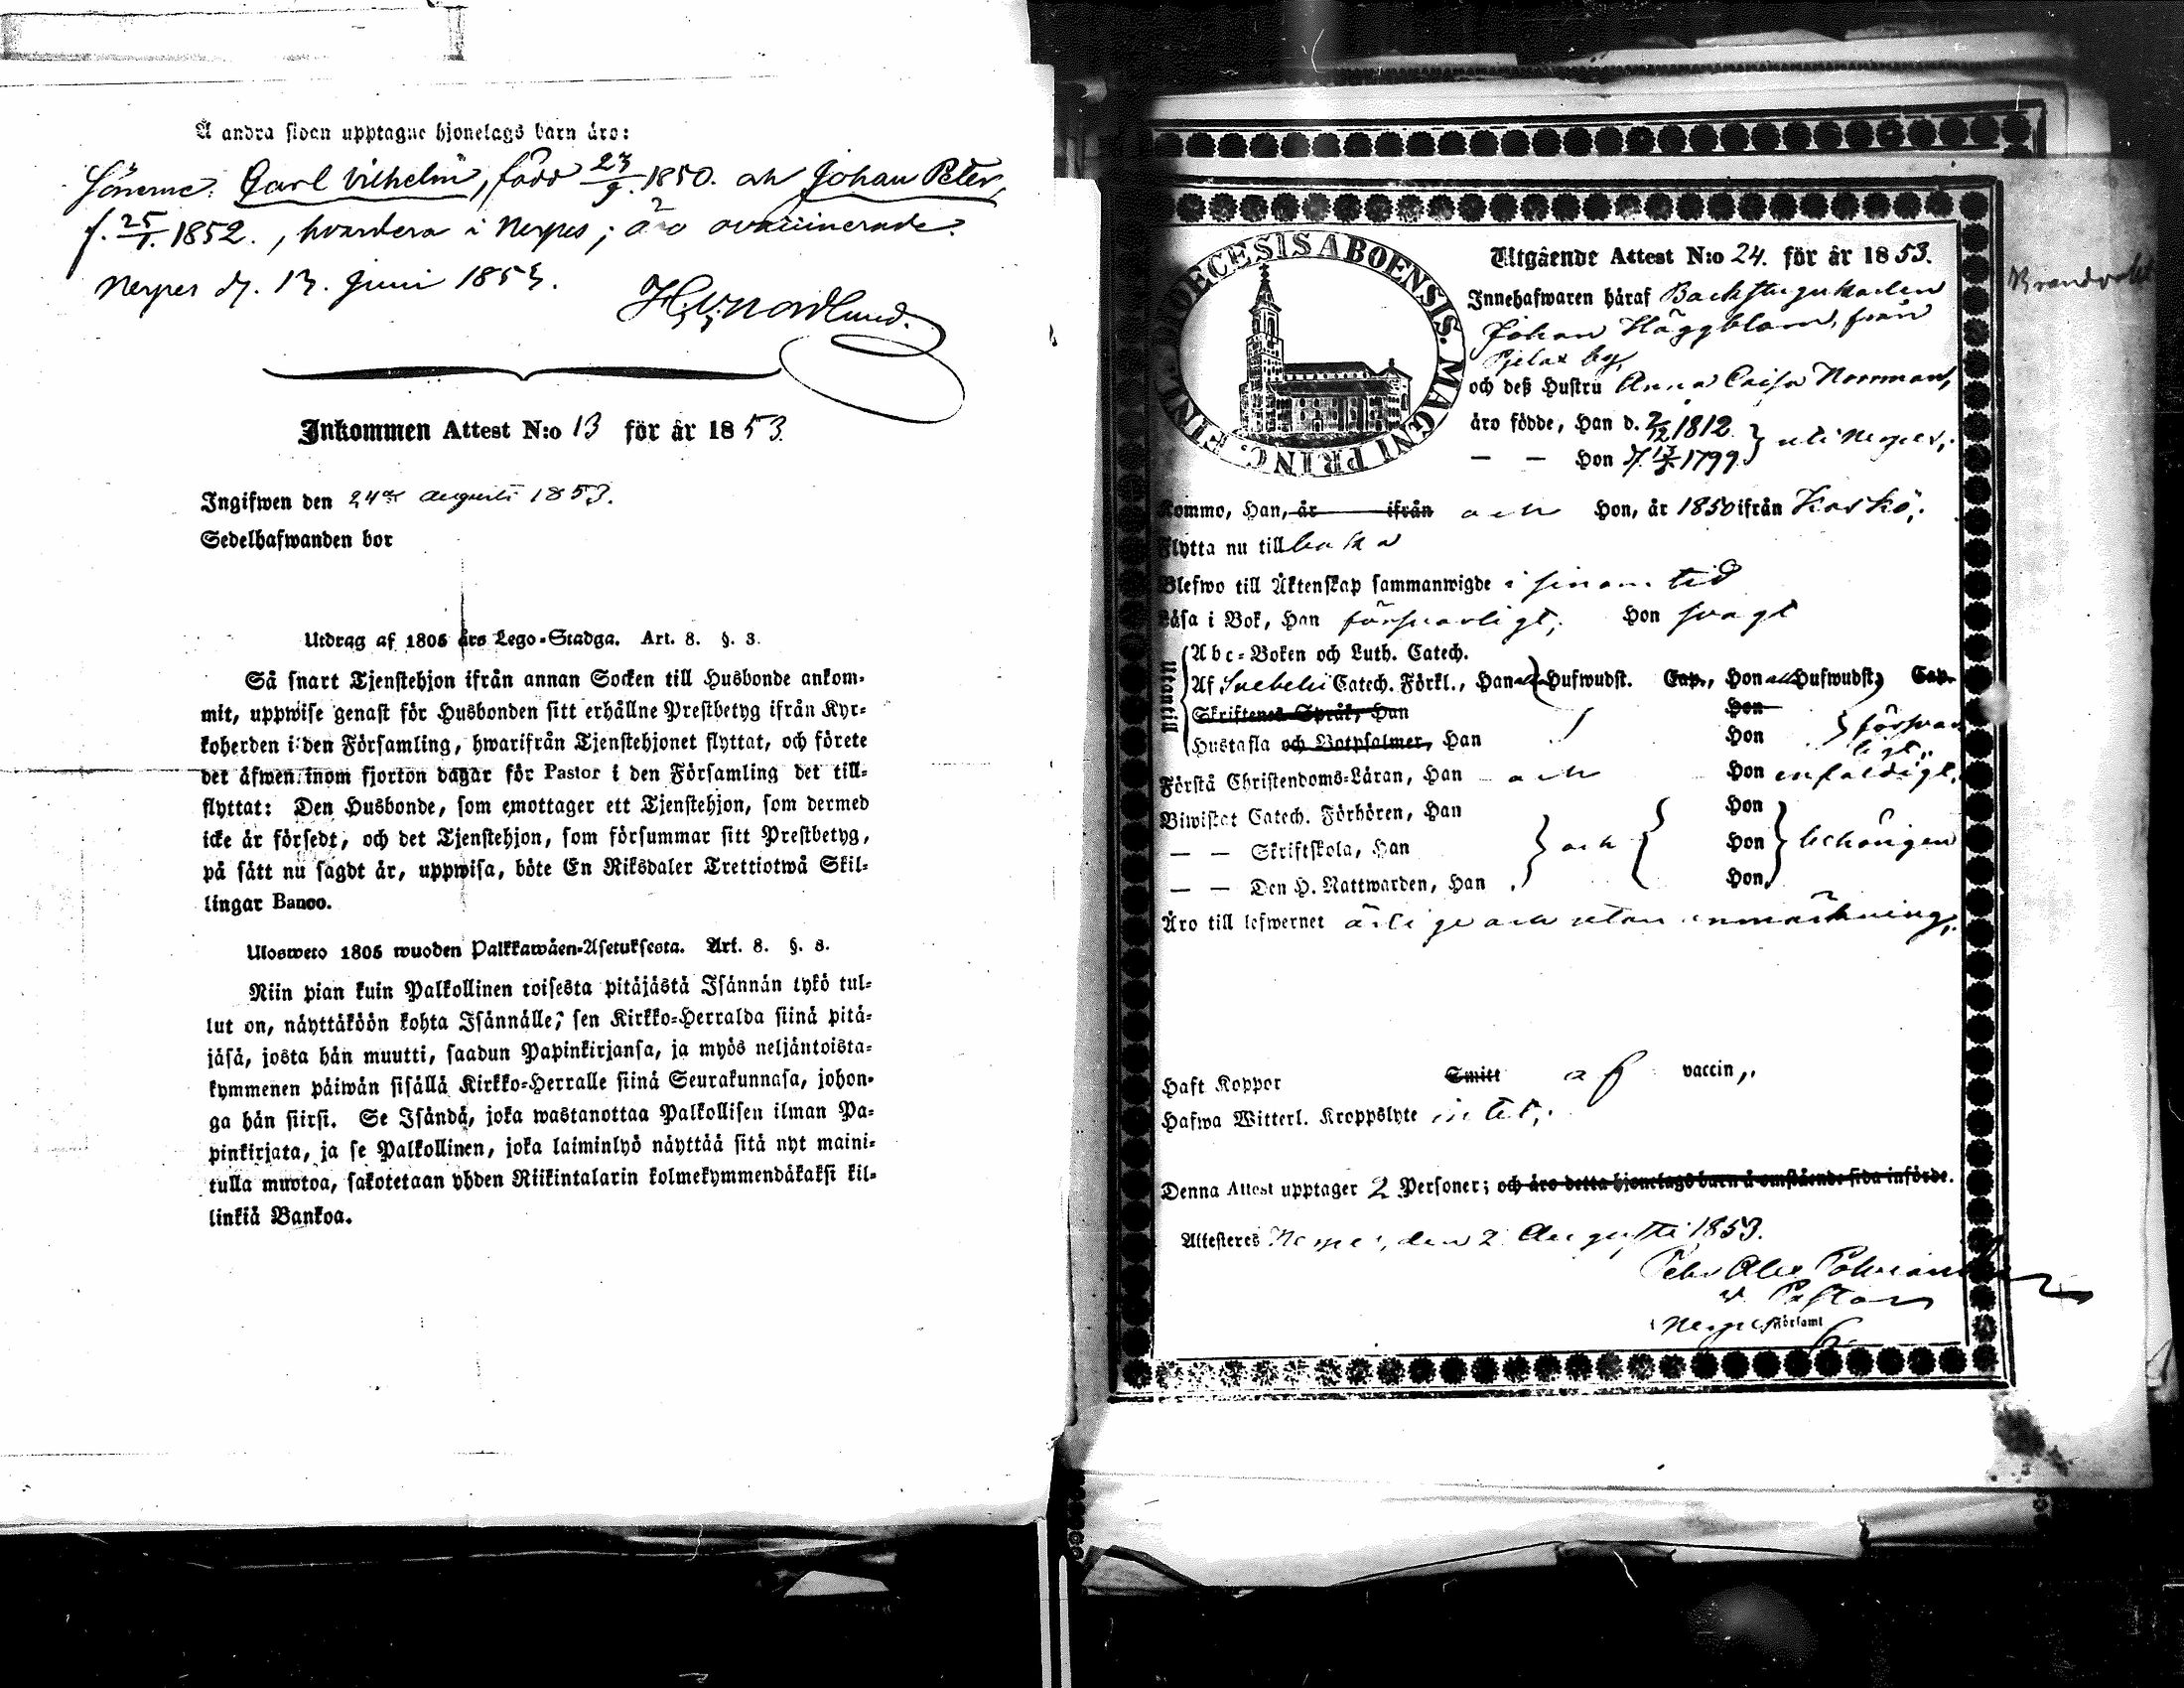 Å andra sidan upptagne hjonelags barn äro:
Sönerne: Carl Vilhelm, född 23/9. 1850. och Johan Peter,
f. 25/1. 1852., hvardera i Nerpes; äro ovaccinerade.
Nerpes d. 13. Juni 1853.
H. V. Nordlund.
Inkommen Attest N:o 13 för år 1853.
Ingifwen den 24de Augusti 1853.
Sedelhafwanden bor
Utdrag af 1805 års Lego-Stadga. Art. 8. §. 3.
Så snart Tjenstehjon ifrån annan Socken till Husbonde ankom-
mit, uppwise genast för Husbonden sitt erhållne Prestbetyg ifrån Kyr-
koherden i den Församling, hwarifrån Tjenstehjonet flyttat, och förete
det äfwen inom fjorton dagar för Pastor i den Församling det till-
flyttat: Den Husbonde, som emottager ett Tjenstehjon, som dermed
icke är försedt, och det Tjenstehjon, som försummar sitt Prestbetyg,
på sätt nu sagdt är, uppwisa, böte En Riksdaler Trettiotwå Skil-
lingar Banco.
Ulosweto 1805 wuoden Palkkawäen-Asetuksesta. Art. 8. §. 3.
Niin pian kuin Palkollinen toisesta pitäjästä Isännän tykö tul-
lut on, näyttäköön kohta Isännälle, sen Kirkko-Herralda siinä pitä-
jäsä, josta hän muutti, saadun Papinkirjansa, ja myös neljäntoista-
kymmenen päiwän sisällä Kirkko-Herralle siinä Seurakunnasa, johon-
ga hän siirsi. Se Isändä, joka wastanottaa Palkollisen ilman Pa-
pinkirjata, ja se Palkollinen, joka laiminlyö näyttää sitä nyt maini-
tulla muotoa, sakotetaan yhden Riikintalarin kolmekymmendäkaksi kil-
linkiä Bankoa.
DIOECESIS ABOENSIS. MAGNI PRINC. FINL.
Utgående Attest N:o 24. för år 1853.
Innehafwaren häraf Backstugukarlen
Johan Häggblom, från
Pjelax by,
och deß Hustru Anna Caisa Norrman,
äro födde, Han d. 2/12 1812. } uti Nerpes,
— — Hon d. 1799
Kommo, Han, är ifrån och Hon, år 1850 ifrån Kaskö,
Flytta nu tillbaka
Blefwo till Äktenskap sammanwigde i sinom tid
Läsa i Bok, Han försvarligt, Hon svagt
Utantill
Abc-Boken och Luth. Catech.
Af Svebelii Catech. Förkl., Han Hufwudst. Cap., Hon Hufwudst. Cap.
Skriftenes Språk, Han Hon
Hustafla och Botpsalmer, Han Hon försvarligt,
Förstå Christendoms-Läran, Han och Hon enfaldigt,
Biwistat Catech. Förhören, Han Hon
— — Skriftskola, Han } och { Hon } behörigen
— — Den H. Nattwarden, Han Hon
Äro till lefwernet ärlige och utan anmärkning,
Haft Koppor Smitt af vaccin,
Hafwa Witterl. Kroppslyte intet,
Denna Attest upptager 2 Personer; och äro detta hjonelags barn å omstående sida införde.
Attesteres Nerpes, den 2 Augusti 1853.
v. Pastor
i Nerpes Församl
Brandvakt